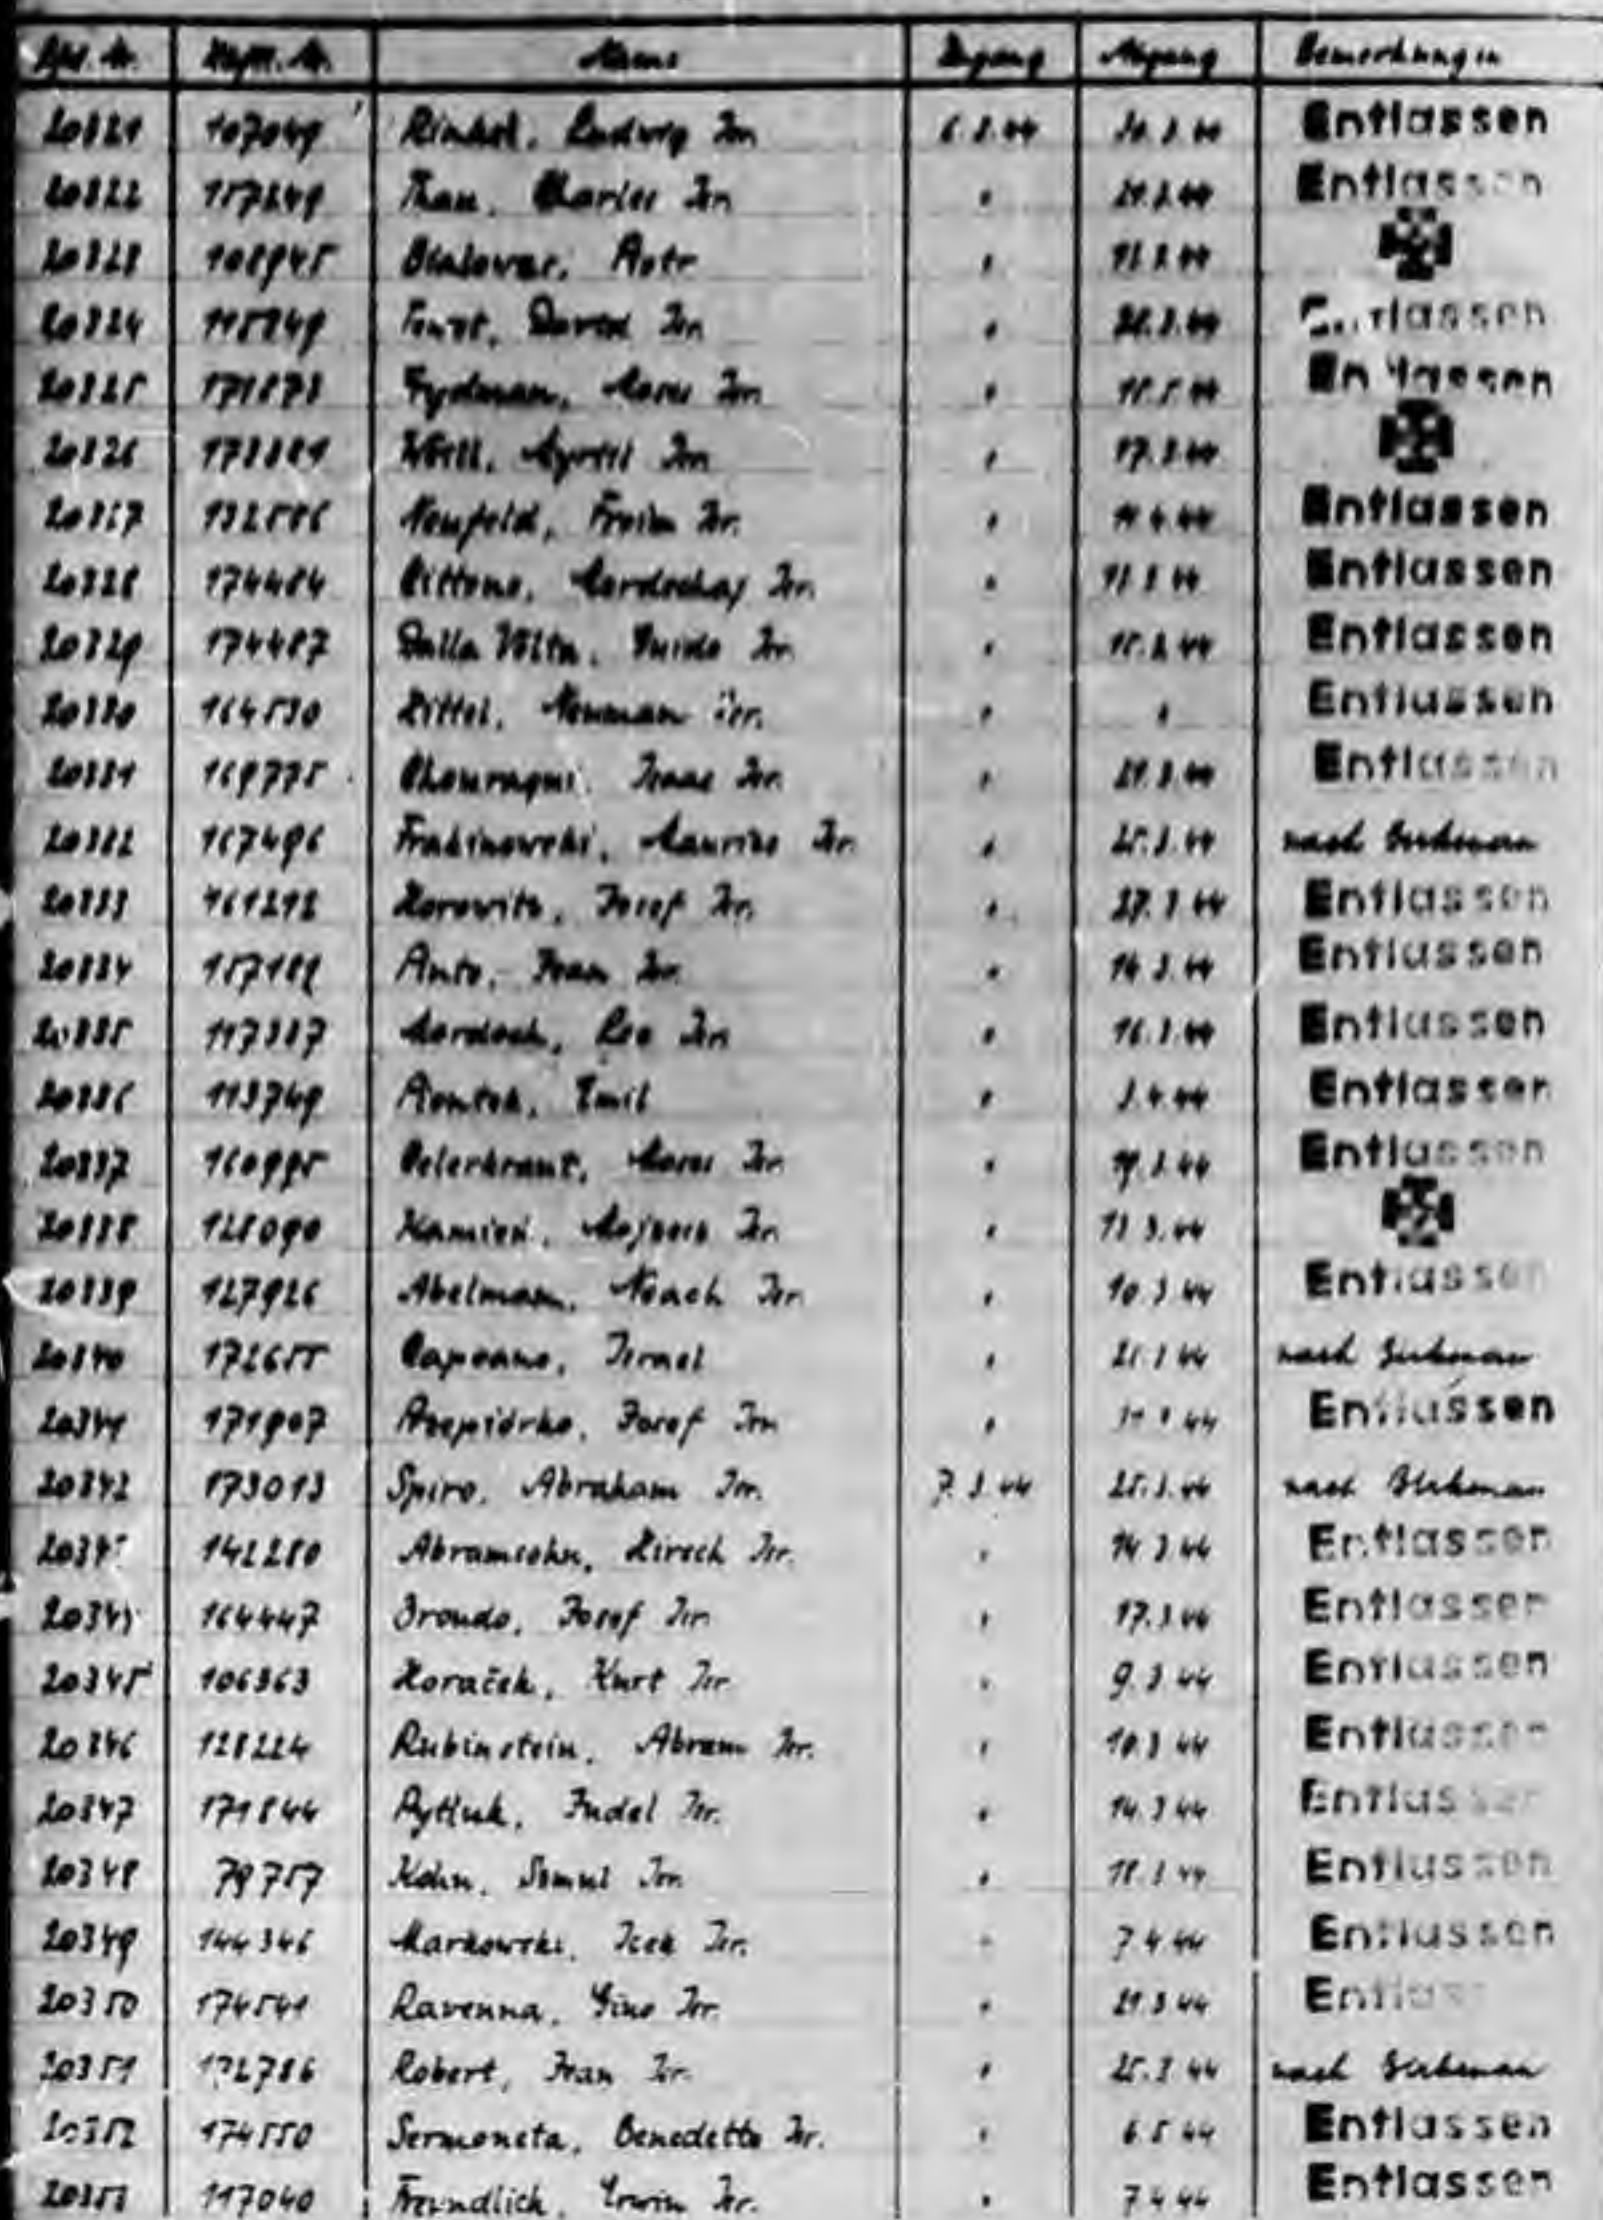 Name Zugang Abgang Bemerkungen
20321 107049 Ludwig Isr. 6.3.44 Entlassen
20322 157249 Thau, Charles Isr. " 21.3.44 Entlassen
20323 108945 Piotr "
20324 Isr. " Entlassen
20325 171873 Frydman, Moses Isr. " Entlassen
20326 Weill, Isr. " 17.3.44
20327 Neufeld, Froim Isr. " 11.4.44 Entlassen
20328 174484 Mordochaj Isr. " Entlassen
20329 174487 Dalla Volta, Guido Isr. " Entlassen
20330 164530 Kittel, Neuman Isr. " " Entlassen
20331 169775 Chouraqui, Isaac Isr. " 21.3.44 Entlassen
20332 167496 Frakinowski, Maurice Isr. " 25.3.44 nach Birkenau
20333 161292 Horowitz, Josef Isr. " 27.3.44 Entlassen
20334 Jean Isr. " 14.3.44 Entlassen
20335 117387 Mordoch, Leo Isr. " 16.3.44 Entlassen
20336 113749 Emil " 3.4.44 Entlassen
20337 160995 Moses Isr. " Entlassen
20338 128090 Kamień, Mojsesz Isr. " 13.3.44
20339 127926 Abelmann, Noach Isr. " 10.3.44 Entlassen
20340 172655 Capoano, Israel " nach Birkenau
20341 171907 Przepiórko, Josef Isr. " Entlassen
20342 173013 Spiro, Abraham Isr. 7.3.44 25.3.44 nach Birkenau
142280 Abramsohn, Hirsch Isr. " 14.3.44 Entlassen
164447 Broudo, Josef Isr. " 17.3.44 Entlassen
20345 106363 Horaček, Kurt Isr. " 9.3.44 Entlassen
20346 128224 Rubinstein, Abram Isr. " 10.3.44 Entlassen
20347 171844 Pytluk, Judel Isr. " 14.3.44 Entlassen
20348 79757 Kohn, Samuel Isr. " 18.3.44 Entlassen
20349 144346 Markowski, Icek Isr. " 7.4.44 Entlassen
20350 174541 Ravenna, Gino Isr. " 21.3.44 Entlassen
20351 172786 Robert, Jean Isr. " 25.3.44 nach Birkenau
20352 174550 Sermoneta, Benedetto Isr. " 6.5.44 Entlassen
20353 117040 Freundlich, Erwin Isr. " 7.4.44 Entlassen